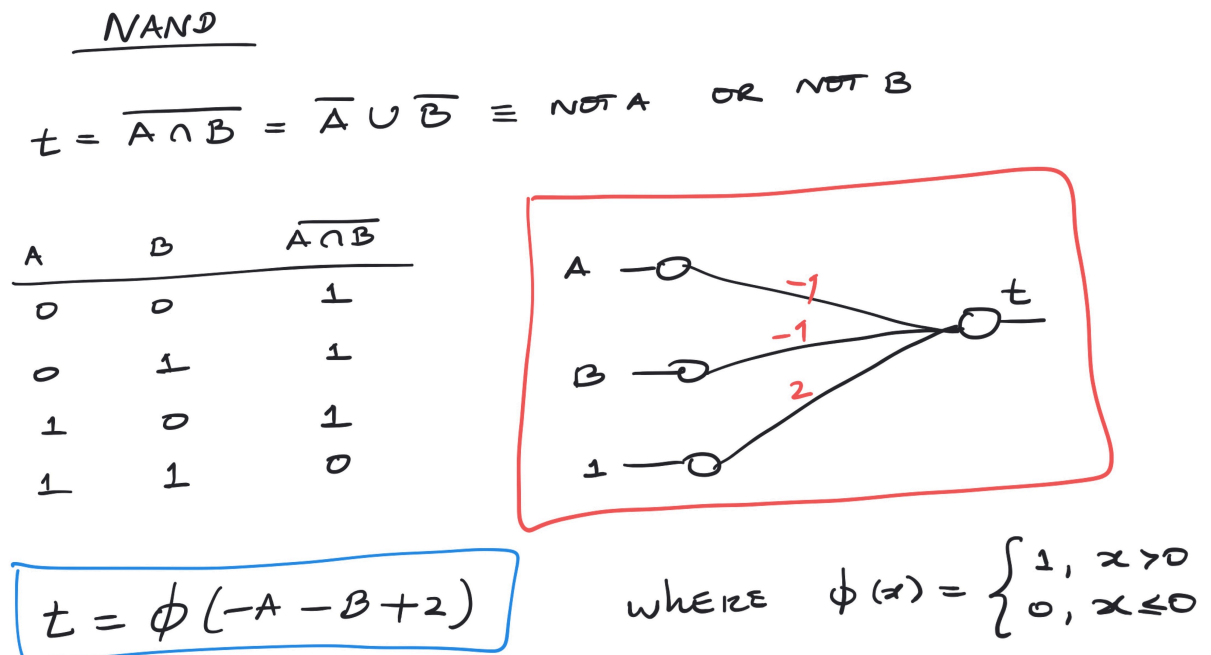 NAND
t = \overline{A ∩ B} = \overline{A} ∪ \overline{B} ≡ NOT A OR NOT B
A B \overline{A ∩ B}
0 0 1
0 1 1
1 0 1
1 1 0
A -1 t
B -1
1 2
t = ϕ(-A - B + 2)
WHERE ϕ(x) = { 1, x > 0
0, x ≤ 0